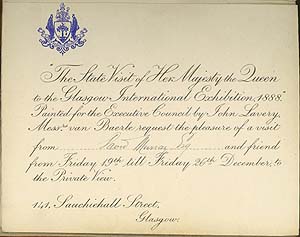 "The State Visit of Her Majesty the Queen
to the Glasgow International Exhibition, 1888."
Painted for the Executive Council by John Lavery.
Messrs. van Baerle request the pleasure of a visit
from David Murray Esq and friend
from Friday 19th till Friday 26th December, to
the Private View.
141, Sauchiehall Street,
Glasgow.